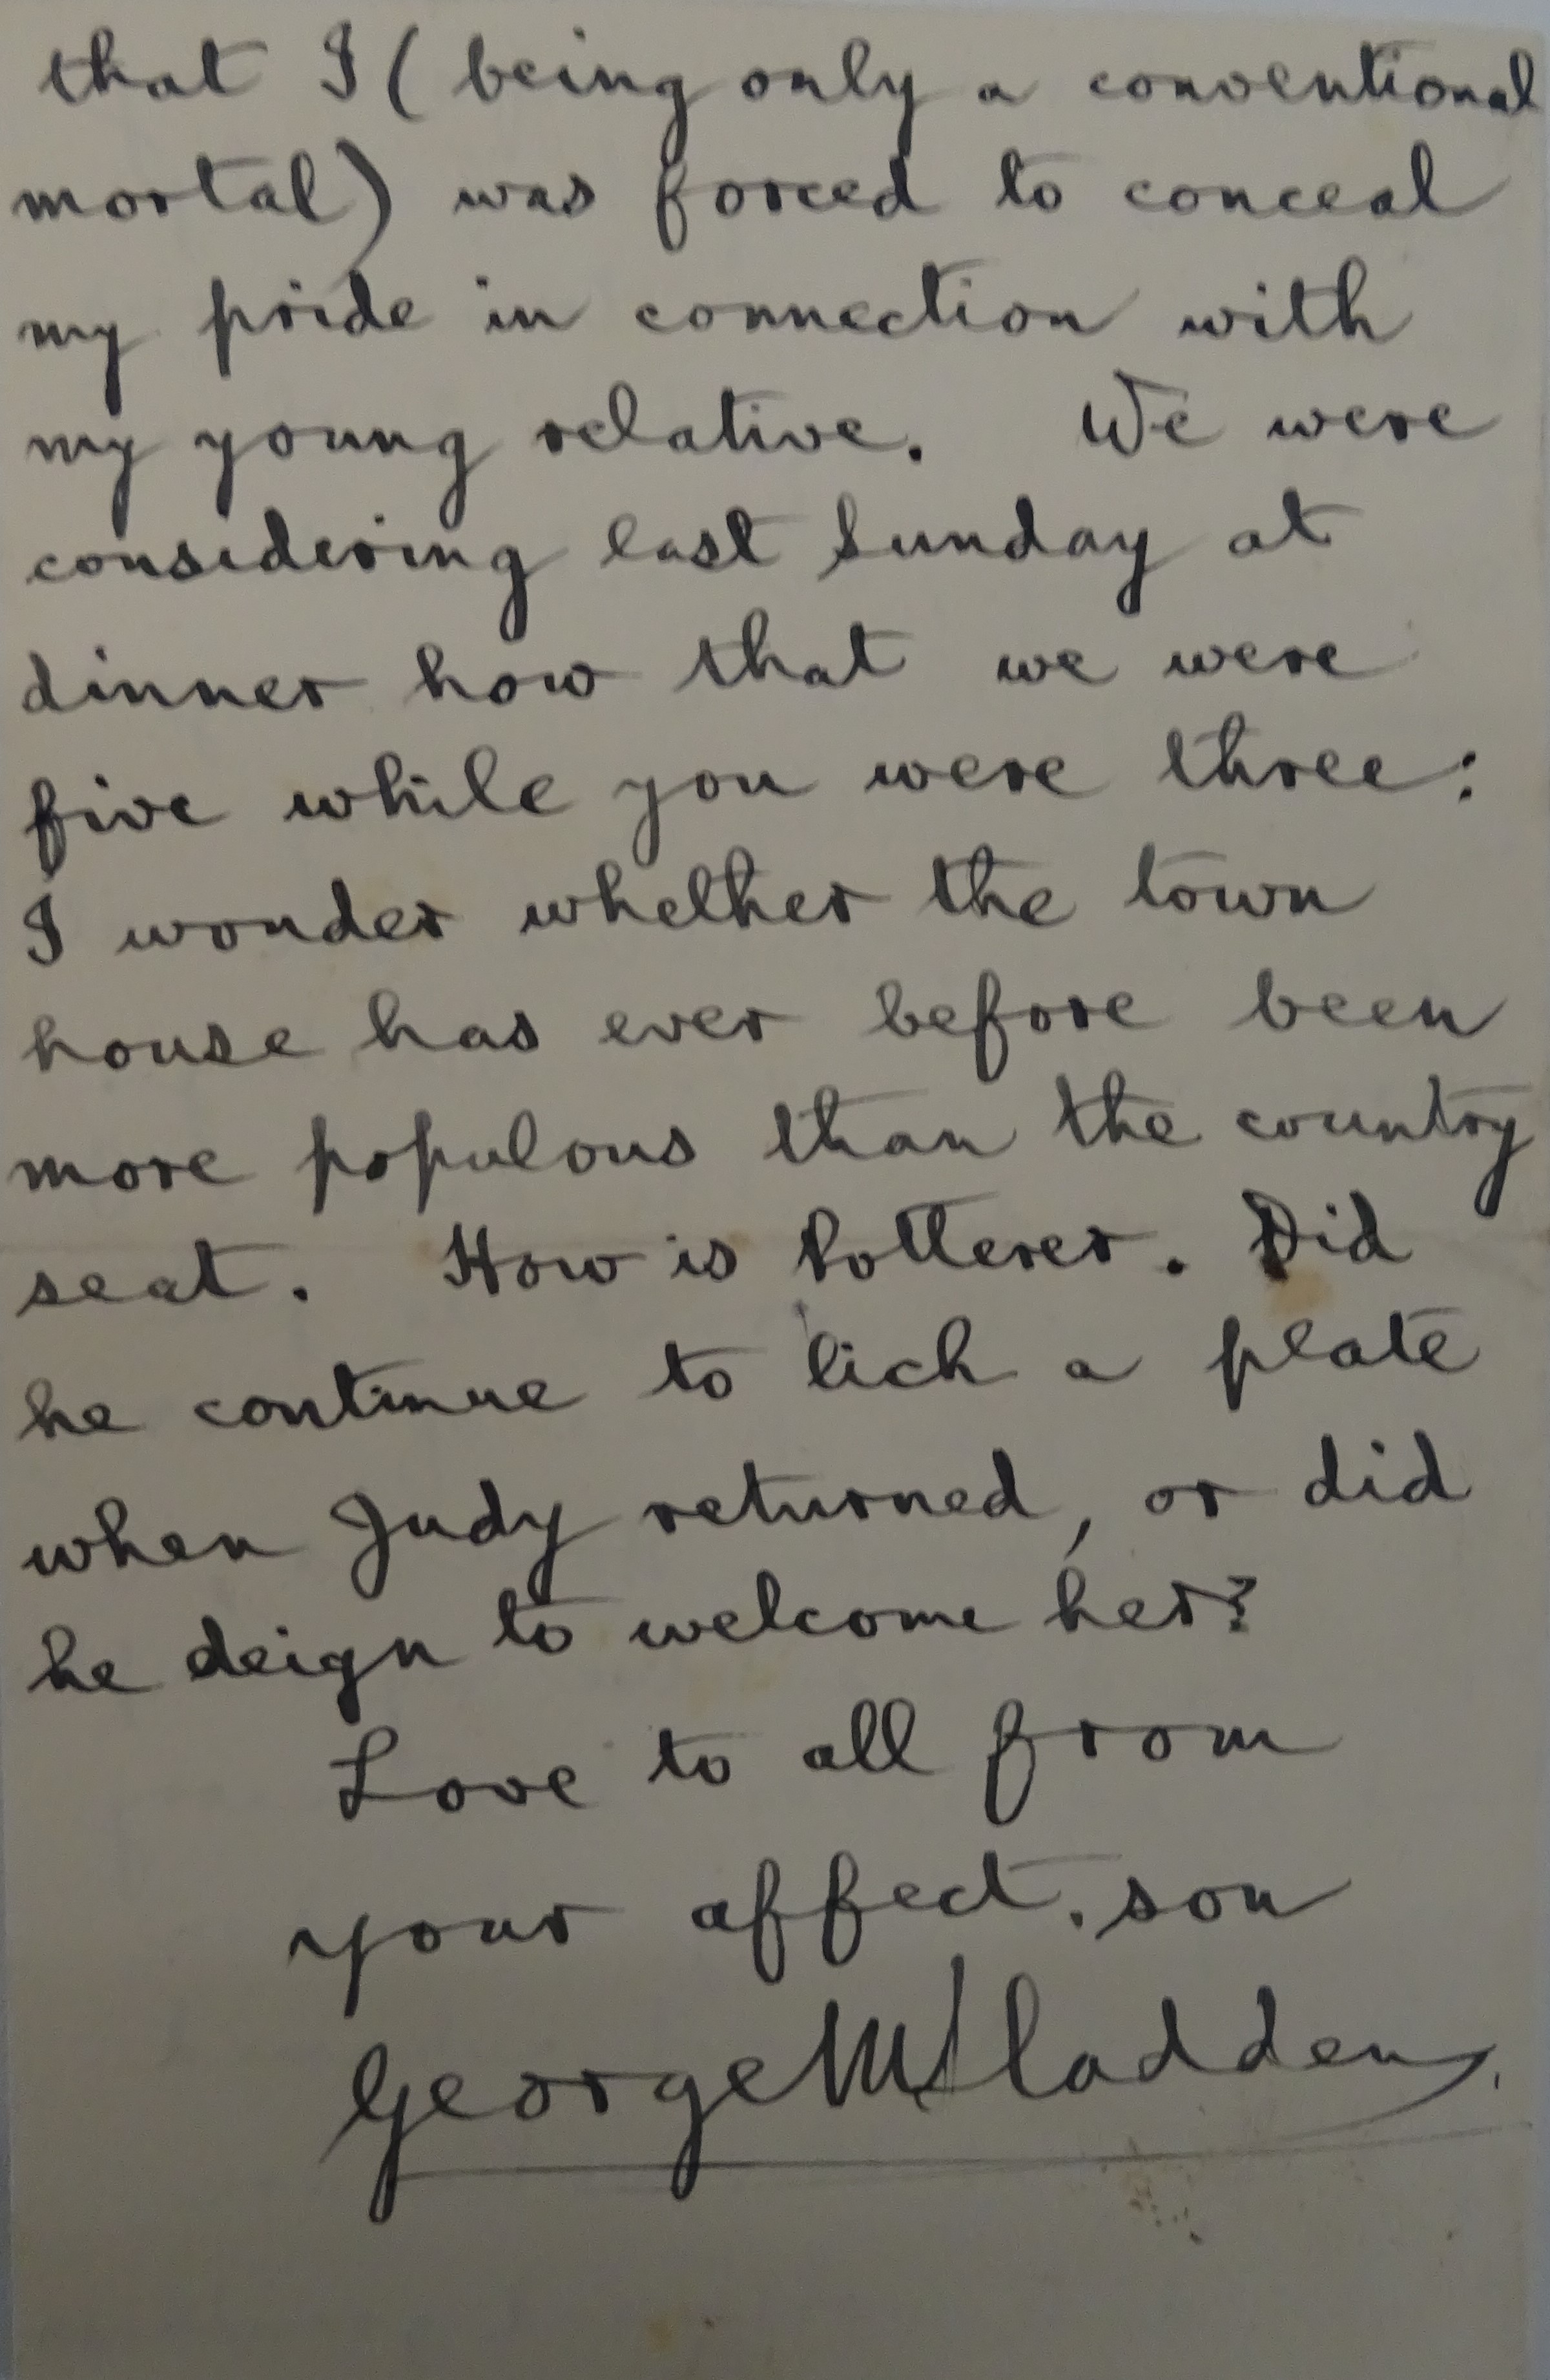 that I (being only a conventional
mortal) was forced to conceal
my pride in connection with
my young relative. We were
considering last Sunday at
dinner how that we were
five while you were three:
I wonder whether the town
house has ever before been
more populous than the country
seat. How is Potterer. Did
he continue to lick a plate
when Judy returned, or did
he deign to welcome her?
Love to all from
your affect. son
George